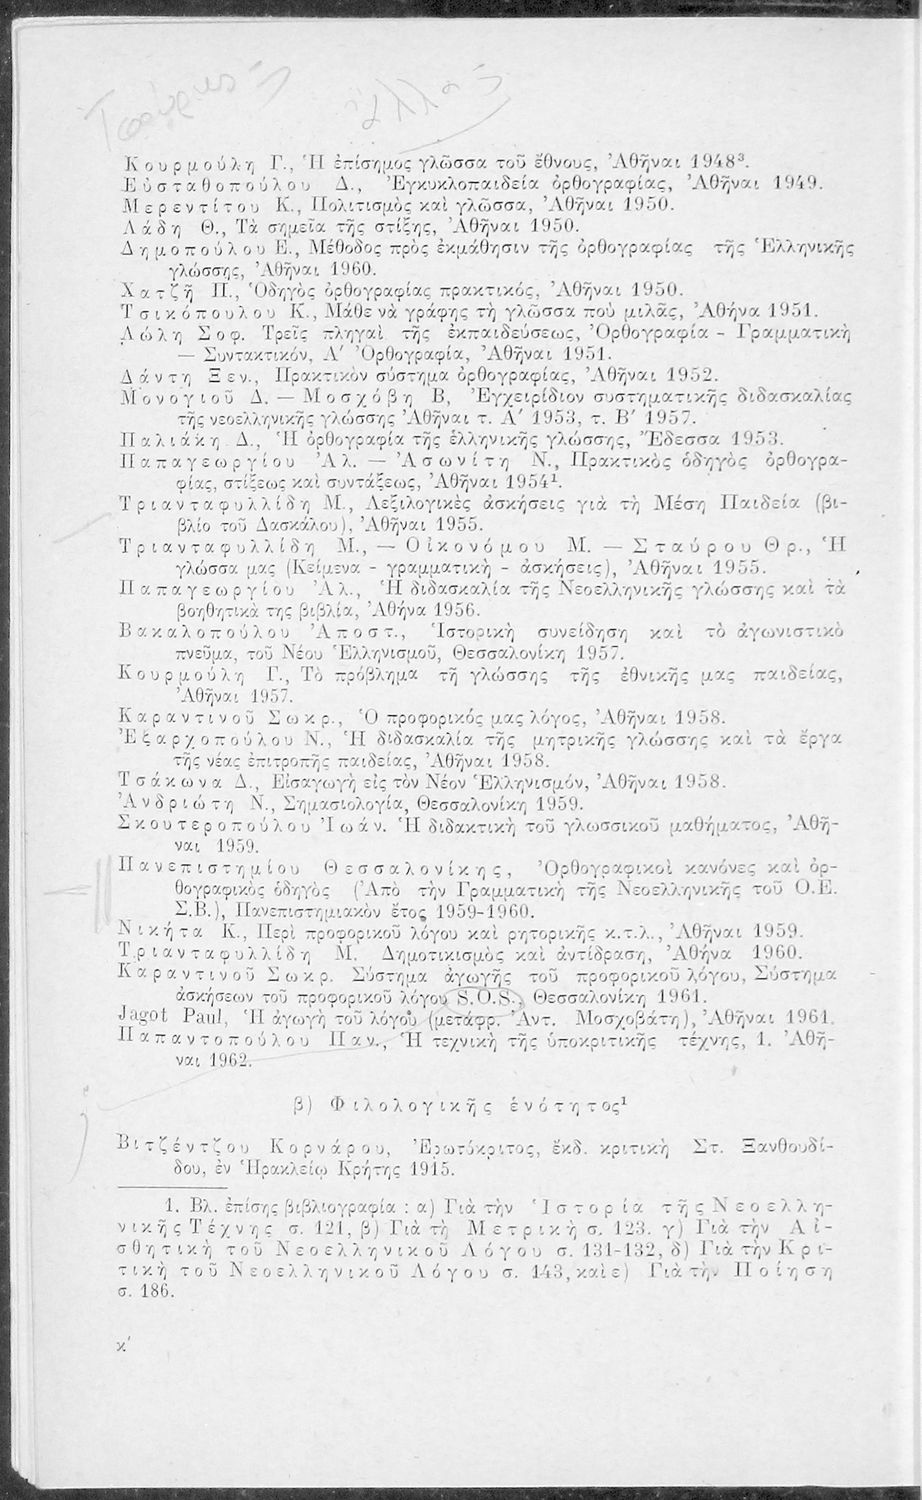 Κουρμούλη Γ., Ἡ ἐπίσημος γλῶσσα τοῦ ἔθνους, Ἀθῆναι 1948³.
Εὐσταθοπούλου Δ., Ἐγκυκλοπαιδεία ὀρθογραφίας, Ἀθῆναι 1949.
Μερεντίτου Κ., Πολιτισμὸς καὶ γλῶσσα, Ἀθῆναι 1950.
Λάδη Θ., Τὰ σημεῖα τῆς στίξης, Ἀθῆναι 1950.
Δημοπούλου Ε., Μέθοδος πρὸς ἐκμάθησιν τῆς ὀρθογραφίας τῆς Ἑλληνικῆς
γλώσσης, Ἀθῆναι 1960.
Χατζῆ Π., Ὁδηγὸς ὀρθογραφίας πρακτικός, Ἀθῆναι 1950.
Τσικόπουλου Κ., Μάθε νὰ γράφης τὴ γλῶσσα ποὺ μιλᾶς, Ἀθήνα 1951.
Λώλη Σοφ. Τρεῖς πληγαὶ τῆς ἐκπαιδεύσεως, Ὀρθογραφία - Γραμματικὴ
— Συντακτικόν, Α' Ὀρθογραφία, Ἀθῆναι 1951.
Δάντη Ξεν., Πρακτικὸν σύστημα ὀρθογραφίας, Ἀθῆναι 1952.
Μονογιοῦ Δ. — Μοσχόβη Β, Ἐγχειρίδιον συστηματικῆς διδασκαλίας
τῆς νεοελληνικῆς γλώσσης Ἀθῆναι τ. Α' 1953, τ. Β' 1957.
Παλιάκη Δ., Ἡ ὀρθογραφία τῆς ἑλληνικῆς γλώσσης, Ἔδεσσα 1953.
Παπαγεωργίου Ἀλ. — Ἀσωνίτη Ν., Πρακτικὸς ὁδηγὸς ὀρθογρα-
φίας, στίξεως καὶ συντάξεως, Ἀθῆναι 1954¹.
Τριανταφυλλίδη Μ., Λεξιλογικὲς ἀσκήσεις γιὰ τὴ Μέση Παιδεία (βι-
βλίο τοῦ Δασκάλου), Ἀθῆναι 1955.
Τριανταφυλλίδη Μ., — Οἰκονόμου Μ. — Σταύρου Θρ., Ἡ
γλώσσα μας (Κείμενα - γραμματικὴ - ἀσκήσεις), Ἀθῆναι 1955.
Παπαγεωργίου Ἀλ., Ἡ διδασκαλία τῆς Νεοελληνικῆς γλώσσης καὶ τὰ
βοηθητικὰ της βιβλία, Ἀθήνα 1956.
Βακαλοπούλου Ἀποστ., Ἱστορικὴ συνείδηση καὶ τὸ ἀγωνιστικὸ
πνεῦμα, τοῦ Νέου Ἑλληνισμοῦ, Θεσσαλονίκη 1957.
Κουρμούλη Γ., Τὸ πρόβλημα τῆ γλώσσης τῆς ἐθνικῆς μας παιδείας,
Ἀθῆναι 1957.
Καραντινοῦ Σωκρ., Ὁ προφορικός μας λόγος, Ἀθῆναι 1958.
Ἐξαρχοπούλου Ν., Ἡ διδασκαλία τῆς μητρικῆς γλώσσης καὶ τὰ ἔργα
τῆς νέας ἐπιτροπῆς παιδείας, Ἀθῆναι 1958.
Τσάκωνα Δ., Εἰσαγωγὴ εἰς τὸν Νέον Ἑλληνισμόν, Ἀθῆναι 1958.
Ἀνδριώτη Ν., Σημασιολογία, Θεσσαλονίκη 1959.
Σκουτεροπούλου Ἰωάν. Ἡ διδακτικὴ τοῦ γλωσσικοῦ μαθήματος, Ἀθῆ-
ναι 1959.
Πανεπιστημίου Θεσσαλονίκης, Ὀρθογραφικοὶ κανόνες καὶ ὀρ-
θογραφικὸς ὁδηγὸς (Ἀπὸ τὴν Γραμματικὴ τῆς Νεοελληνικῆς τοῦ Ο.Ε.
Σ.Β.), Πανεπιστημιακὸν ἔτος 1959-1960.
Νικήτα Κ., Περὶ προφορικοῦ λόγου καὶ ρητορικῆς κ.τ.λ., Ἀθῆναι 1959.
Τριανταφυλλίδη Μ. Δημοτικισμὸς καὶ ἀντίδραση, Ἀθήνα 1960.
Καραντινοῦ Σωκρ. Σύστημα ἀγωγῆς τοῦ προφορικοῦ λόγου, Σύστημα
ἀσκήσεων τοῦ προφορικοῦ λόγου S.O.S., Θεσσαλονίκη 1961.
Jagot Paul, Ἡ ἀγωγὴ τοῦ λόγου (μετάφρ. Ἀντ. Μοσχοβάτη), Ἀθῆναι 1961.
Παπαντοπούλου Παν., Ἡ τεχνικὴ τῆς ὑποκριτικῆς τέχνης, 1. Ἀθῆ-
ναι 1962.
β) Φιλολογικῆς ἑνότητος¹
Βιτζέντζου Κορνάρου, Ἐρωτόκριτος, ἔκδ. κριτικὴ Στ. Ξανθουδί-
δου, ἐν Ἡρακλείῳ Κρήτης 1915.
1. Βλ. ἐπίσης βιβλιογραφία : α) Γιὰ τὴν Ἱστορία τῆς Νεοελλη-
νικῆς Τέχνης σ. 121, β) Γιὰ τὴ Μετρικὴ σ. 123. γ) Γιὰ τὴν Αἰ-
σθητικὴ τοῦ Νεοελληνικοῦ Λόγου σ. 131-132, δ) Γιὰ τὴν Κρι-
τικὴ τοῦ Νεοελληνικοῦ Λόγου σ. 143, καὶ ε) Γιὰ τὴν Ποίηση
σ. 186.
κ'